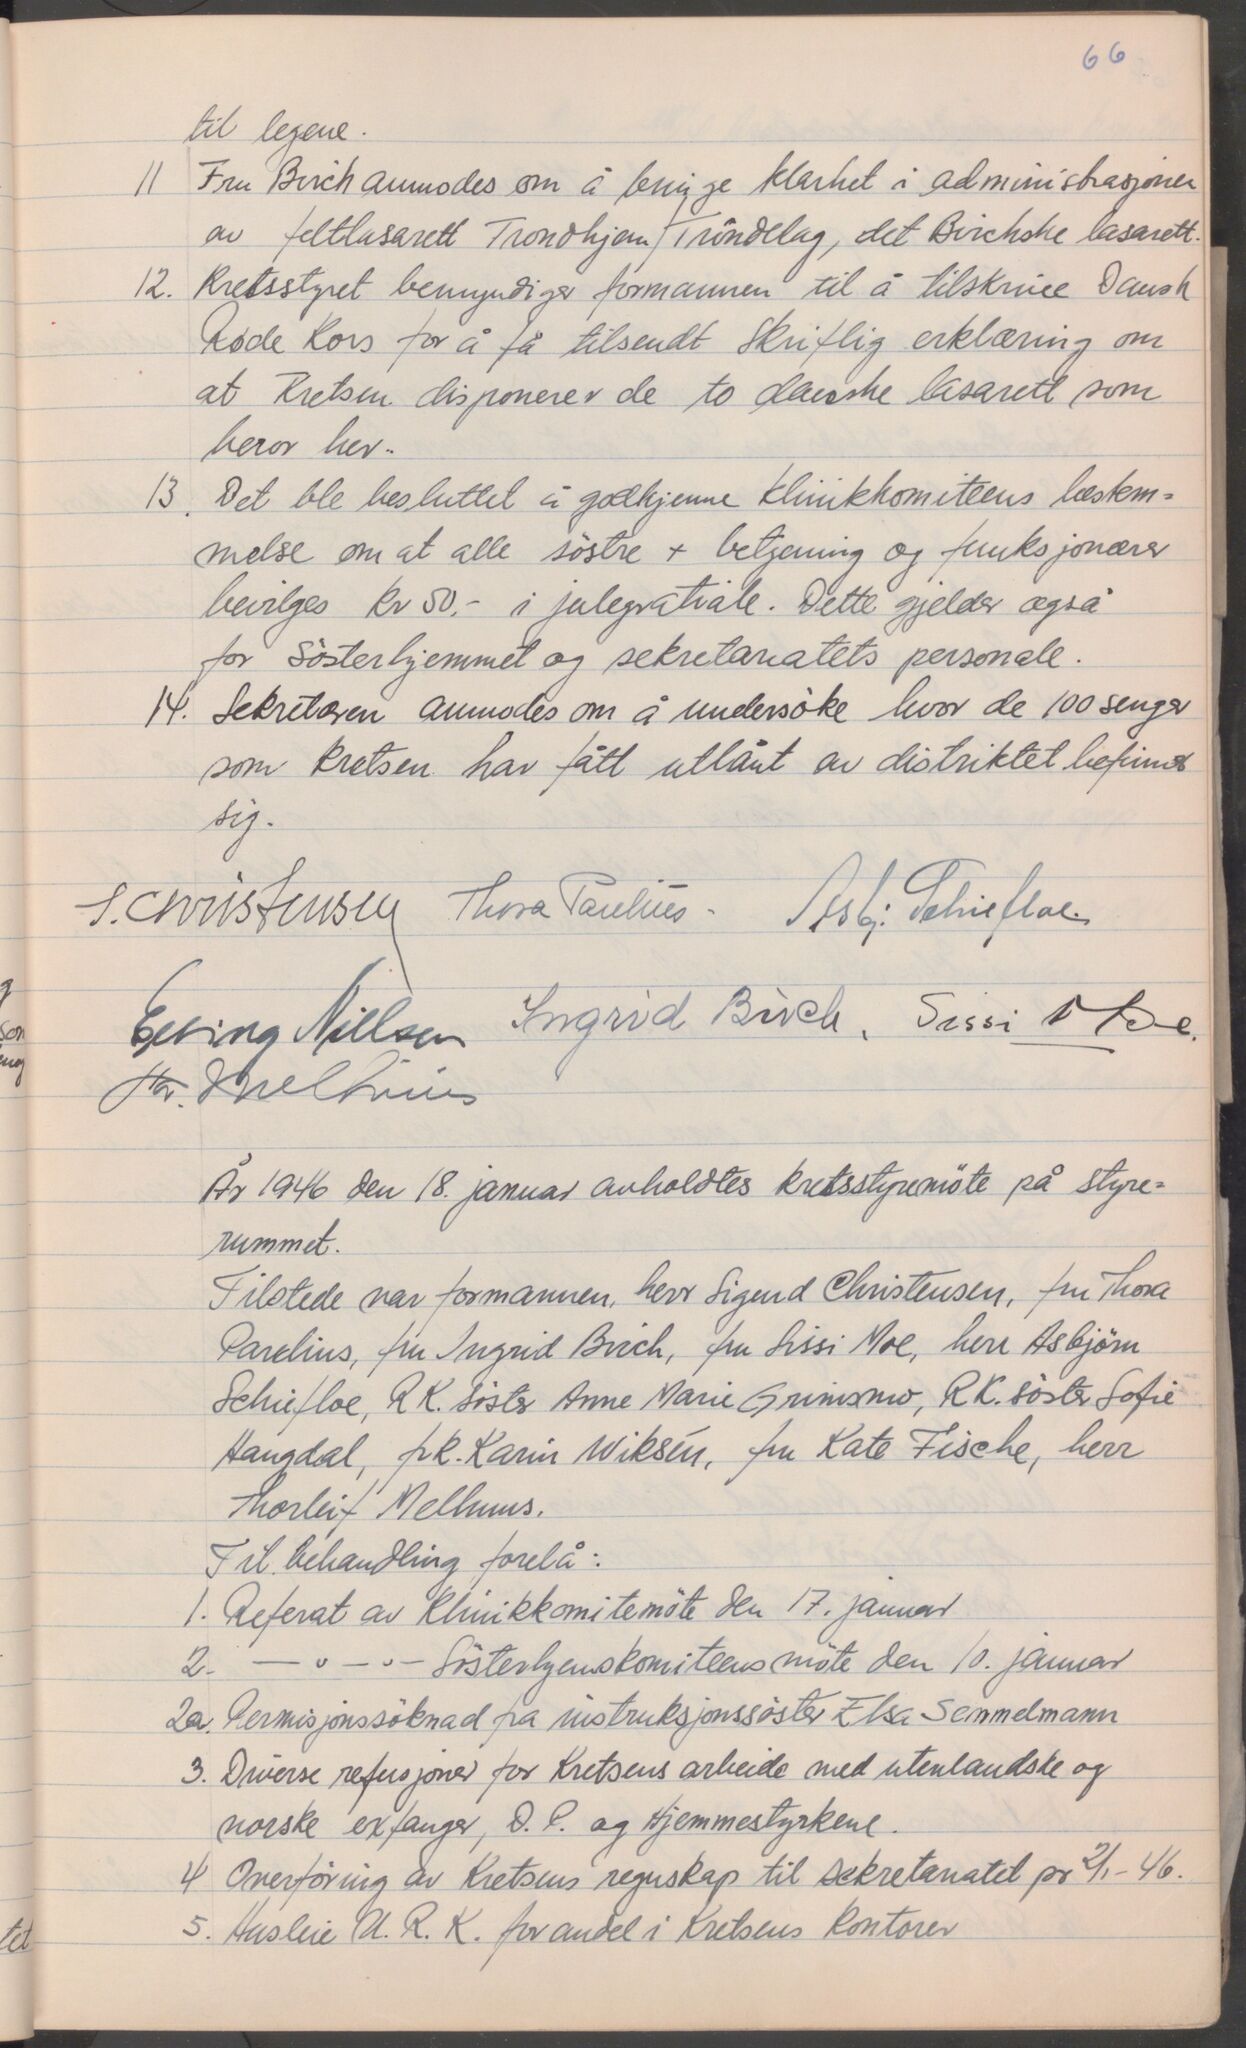 66
til legene.
11 Fru Birch anmodes om å bringe klarhet i administrasjonen
av feltlasarett Trondhjem/Tröndelag, det Birchske lasarett.
12. Kretsstyret bemyndiger formannen til å tilskrive Dansk
Röde Kors for å få tilsendt skriftlig erklæring om
at Kretsen disponerer de to danske lasarett som
beror her.
13. Det ble besluttet å godkjenne klinikkomiteens bestem=
melse om at alle söstre + betjening og funksjonærer
bevilges kr 50.- i julegratiale. Dette gjelder også
for Sösterhjemmet og sekretariatets personale.
14. Sekretæren anmodes om å undersöke hvor de 100 senger
som kretsen har fått utlånt av distriktet befinner
sig.
S. Christensen Thora Parelius - Asbj. Schiefloe.
Erling Nilsen Ingrid Birch, Sissi Moe.
Th. Melhuus
År 1946 den 18. januar avholdtes kretsstyremöte på styre=
rummet.
Tilstede var formannen, herr Sigurd Christensen, fru Thora
Parelius, fru Ingrid Birch, fru Sissi Moe, herr Asbjörn
Schiefloe, R K. söster Anne Marie Grimsmo, R K. söster Sofie
Haugdal, frk. Karin Wiksén, fru Kate Fische, herr
Thorleif Melhuus.
Til behandling forelå:
1. Referat av Klinikkomitemöte den 17. januar
2. — " — " — Sösterhjemskomiteens möte den 10. januar
2a. Permisjonssöknad fra instruksjonssöster Elsa Semmelmann
3. Diverse refusjoner for Kretsens arbeide med utenlandske og
norske exfanger, D. P. og Hjemmestyrkene.
4 Overföring av Kretsens regnskap til sekretariatet pr 2/1-46.
5. Husleie U. R. K. for andel i Kretsens kontorer